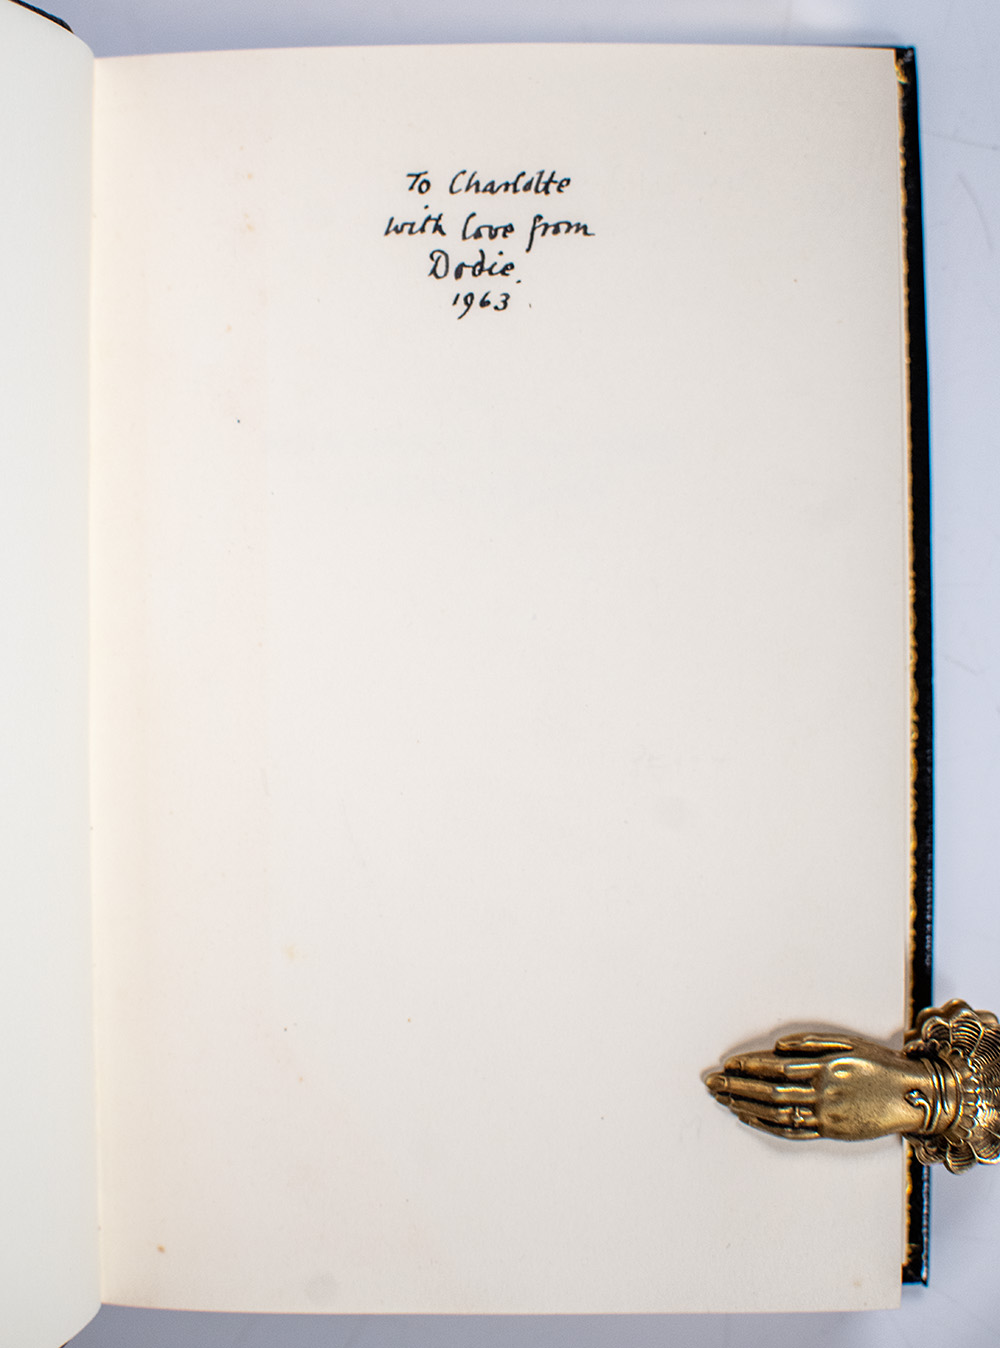 To Charlotte
with love from
Dodie.
1963.